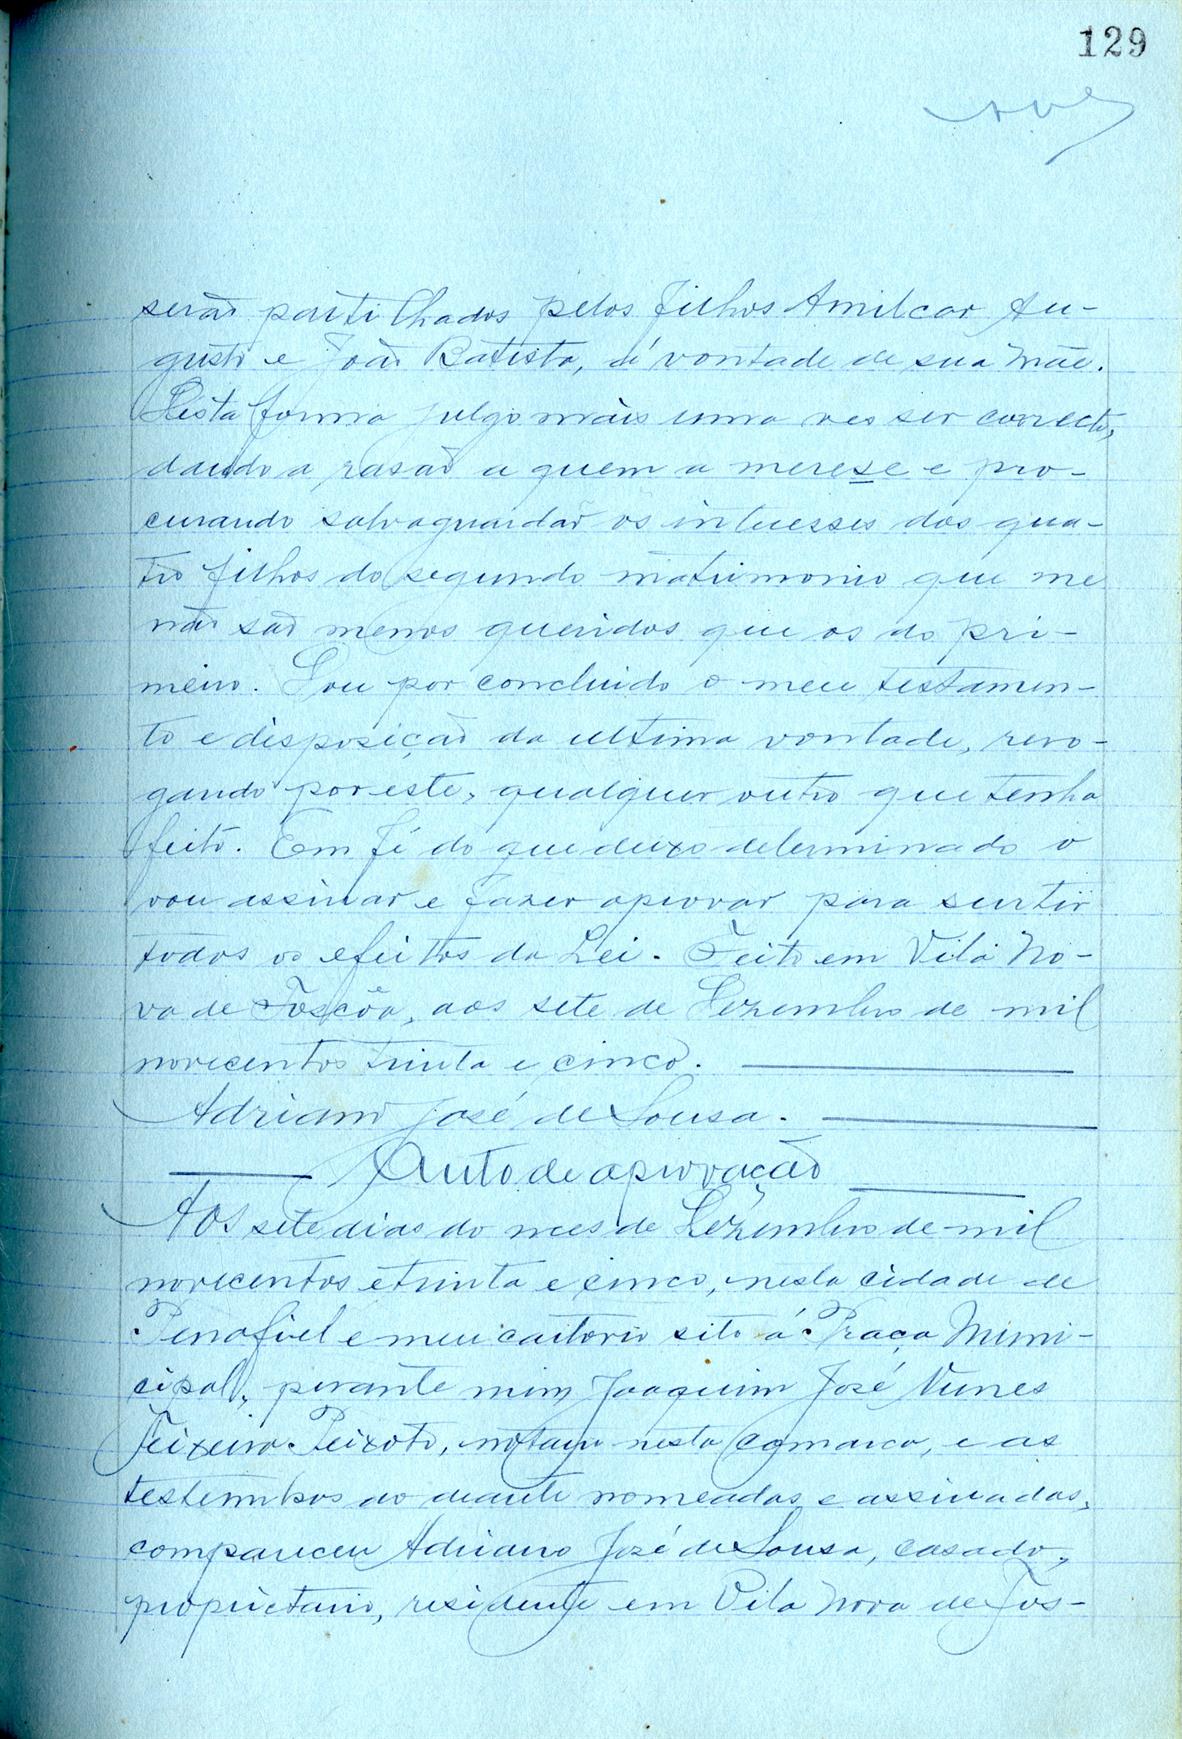 129
serão partilhados pelos filhos Amilcar Au-
gusto e João Batista, á vontade de sua Mãe.
Desta forma julgo mais uma ves ser correcto,
dando a rasão a quem a merese e pro-
curando salvaguardar os interesses dos qua-
tro filhos do segundo matrimonio que me
não são menos queridos que os do pri-
meiro. Dou por concluido o meu testamen-
to e disposição da ultima vontade, revo-
gando por este, qualquer outro que tenha
feito. Em fé do que deixo determinado o
vou assinar e fazer aprovar para surtir
todos os efeitos da Lei. Feito em Vila No-
va de Foscôa, aos sete de Dezembro de mil
novecentos trinta e cinco.
Adriano José de Sousa.
Auto de aprovação
Aos sete dias do mes de Dezembro de mil
novecentos e trinta e cinco, nesta cidade de
Penafiel e meu cartorio sito á Praça Muni-
cipal, perante mim Joaquim José Nunes
Teixeira Peixoto, notario nesta comarca, e as
testemunhas ao deante nomeadas e assinadas,
compareceu Adriano José de Sousa, casado,
proprietario, residente em Vila Nova de Fos-